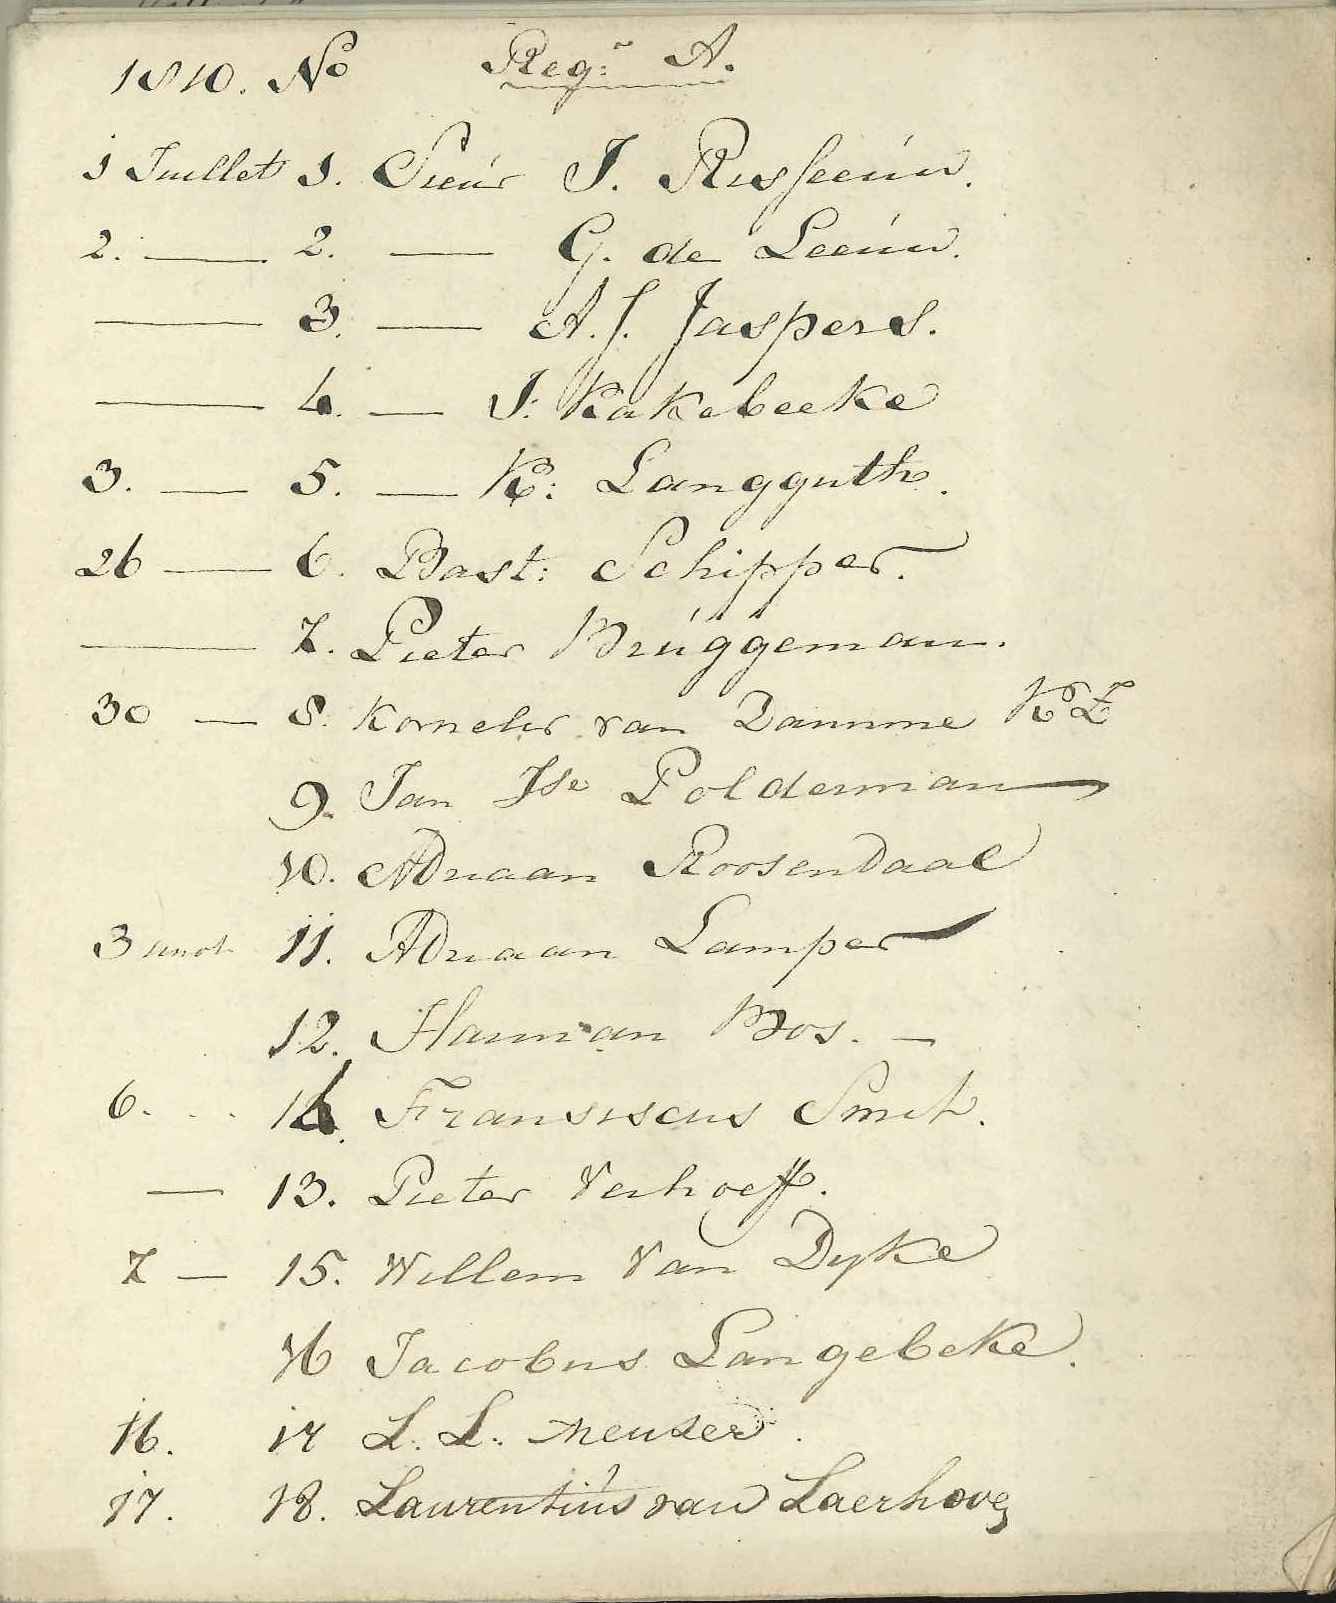 1810. No Reg: A.
1 Juillet 1. Sieur J. Risseeúw.
2. — 2. — G. de Leeúw.
— 3. — A. J. Jaspers.
— 4. — J: Kakebeeke
3. — 5. — K: Langguth.
26 — 6. Bast: Schipper.
— 7. Pieter Brúggeman.
30 — 8. Kornelis van Damme KZ
9. Jan Jse Polderman
10. Adriaan Roosendaal
3 11. Adriaan Lamper
12. Harman Bos. —
6. . . 14. Fransiscus Smit.
— 13. Pieter Verhoeff.
7 — 15. Willem Van Dyke
16 Jacobus Langebeke.
16. 17 L. L. Meuser.
17. 18. Laurentiús van Laerhove